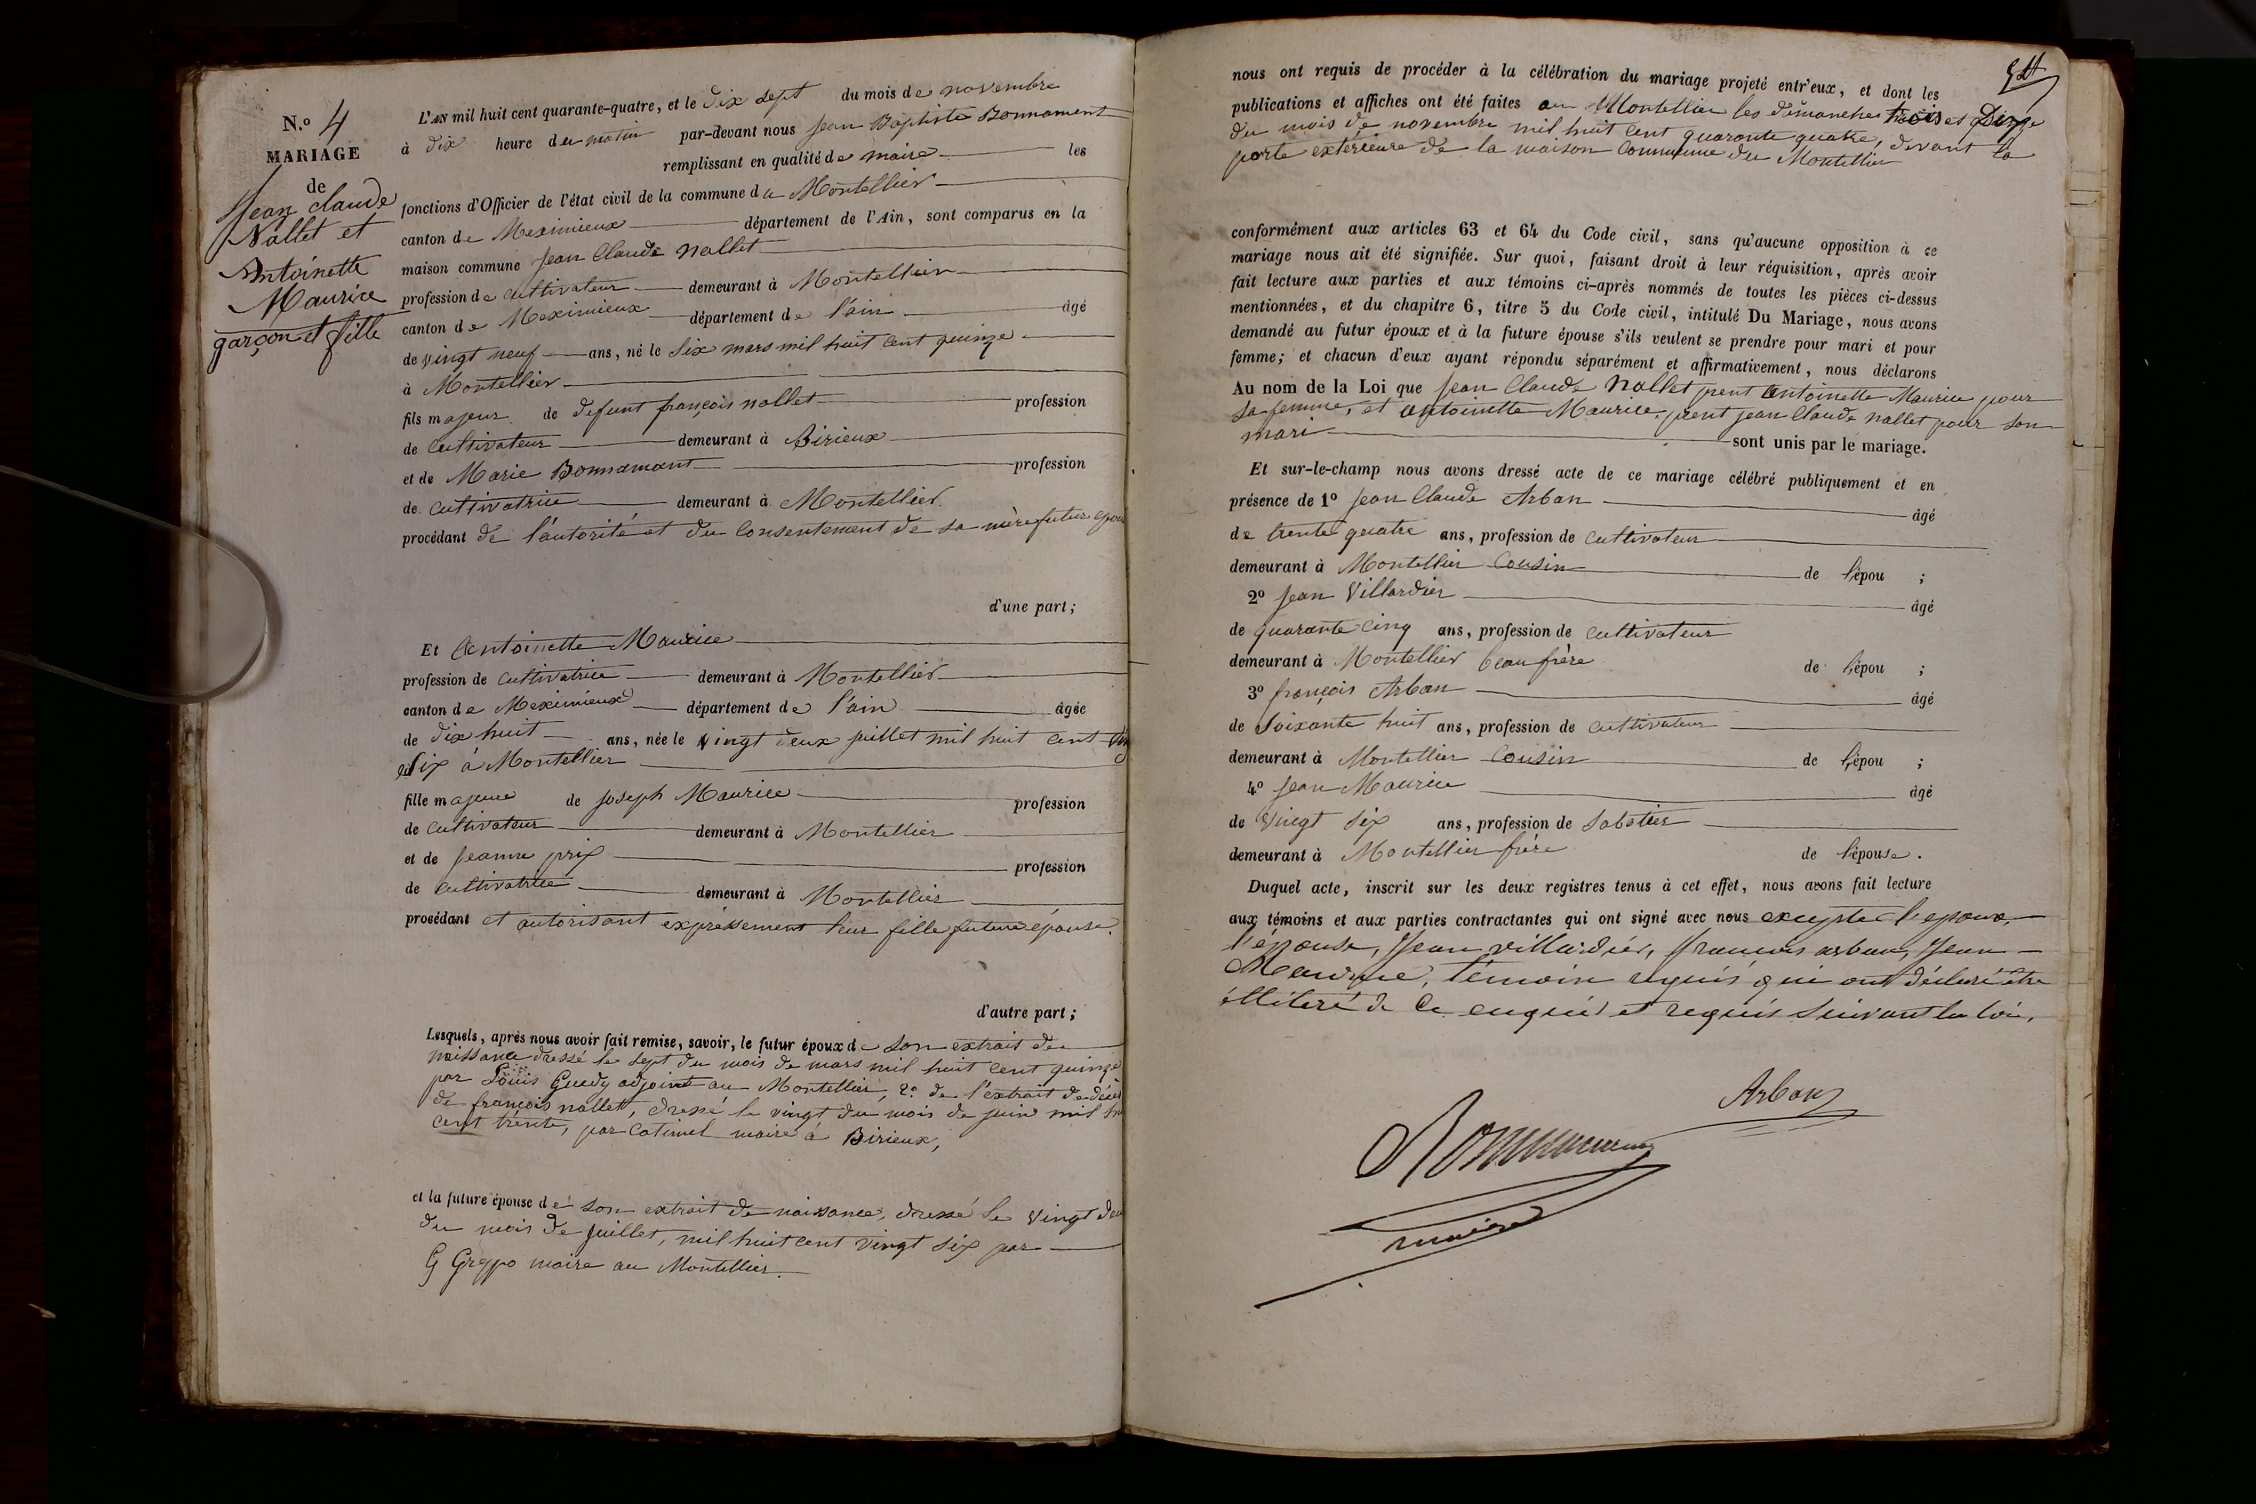 N.o 4
MARIAGE
de
Jean claude
Nallet et
Antoinette
Maurice
garçon et fille
L'AN mil huit cent quarante-quatre, et le dix sept du mois de novembre
à dix heure du matin par-devant nous Jean Baptiste Bonnamant
remplissant en qualité de maire les
fonctions d'Officier de l'état civil de la commune du Montellier
canton de Meximieux département de l'Ain, sont comparus en la
maison commune Jean Claude Nallet
profession de cultivateur demeurant à Montellier
canton de Meximieux département de l'ain âgé
de vingt neuf ans, né le Six mars mil huit cent quinze
à Montellier
fils majeur de defunt françois nallet profession
de cultivateur demeurant à Birieux
et de Marie Bonnamant profession
de cultivatrice demeurant à Montellier
procédant de l'autorité et du Consentement de sa mère future
d'une part;
Et Antoinette Maurice
profession de cultivatrice demeurant à Montellier
canton de Meximieux département de l'ain âgée
de dix huit ans, née le vingt deux juillet mil huit cent
Six à Montellier
fille majeure de joseph Maurice profession
de cultivateur demeurant à Montellier
et de jeanne prix profession
de cultivatrice demeurant à Montellier
procédant et autorisant expréssement leur fille future épouse.
d'autre part;
Lesquels, après nous avoir fait remise, savoir, le futur époux de son extrait de
naissance dressé le sept du mois de mars mil huit cent quinze
par Louis Guedy adjoint au Montellier, 2o de l'extrait de décè
de françois nallet, dressé le vingt du mois de juin mil
cent trente, par Catimel maire à Birieux,
et la future épouse de son extrait de naissance, dressé le vingt
du mois de juillet, mil huit cent vingt six par
G Greppo maire au Montellier.
54
nous ont requis de procéder à la célébration du mariage projeté entr'eux, et dont les
publications et affiches ont été faites au Montellier les dimanches trois et Dix
du mois de novembre mil huit cent quarante quatre, devant la
porte exterieure de la maison Commune du Montellier
conformément aux articles 63 et 64 du Code civil, sans qu'aucune opposition à ce
mariage nous ait été signifiée. Sur quoi, faisant droit à leur réquisition, après avoir
fait lecture aux parties et aux témoins ci-après nommés de toutes les pièces ci-dessus
mentionnées, et du chapitre 6, titre 5 du Code civil, intitulé Du Mariage, nous avons
demandé au futur époux et à la future épouse s'ils veulent se prendre pour mari et pour
femme; et chacun d'eux ayant répondu séparément et affirmativement, nous déclarons
Au nom de la Loi que jean Claude Nallet prent Antoinette Maurice pour
sa femme, et antoinette Maurice prent jean Claude nallet pour son
mari sont unis par le mariage.
Et sur-le-champ nous avons dressé acte de ce mariage célébré publiquement et en
présence de 1o jean Claude Arban âgé
de trente quatre ans, profession de cultivateur
demeurant à Montellier Cousin de l'épou ;
2o jean Villardier âgé
de quarante cinq ans, profession de cultivateur
demeurant à Montellier beau frère de l'épou ;
3o françois Arban âgé
de Soixante huit ans, profession de cultivateur
demeurant à Montellier Cousin de l'épou ;
4o jean Maurice âgé
de vingt six ans, profession de Sabotier
demeurant à Montellier frère de l'épouse.
Duquel acte, inscrit sur les deux registres tenus à cet effet, nous avons fait lecture
aux témoins et aux parties contractantes qui ont signé avec nous excepté l'epoux,
l'épouse, Jean villardier, francois arban, Jean
Maurice, témoin requis qui ont déclaré être
illiteré de ce enquis et requis suivant la loi.
Arban
Bonnamant
maire